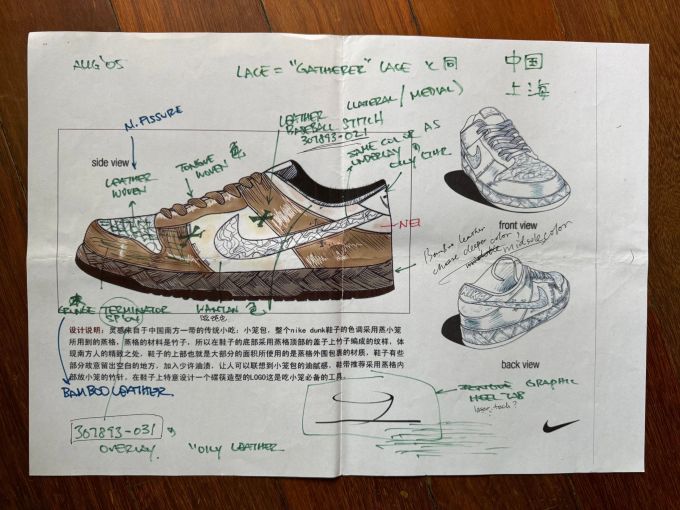 AUG '05
LACE = "GATHERER" LACE
中国
上海
N. FISSURE
LEATHER
BASEBALL STITCH
307893-021
(LATERAL / MEDIAL)
side view
TONGUE 色
WOVEN
LEATHER
WOVEN
SAME COLOR AS
UNDERLAY
front view
Bamboo leather
choose deeper color?
midsole color
TERMINATOR
SP 04
设计说明：灵感来自于中国南方一带的传统小吃：小笼包，整个nike dunk鞋子的色调采用蒸小笼
所用到的蒸格，蒸格的材料是竹子，所以在鞋子的底部采用蒸格顶部的盖子上竹子编成的纹样，体
现南方人的精致之处，鞋子的上部也就是大部分的面积所使用的是蒸格外围包裹的材质，鞋子有些
部分故意留出空白的地方，加入少许油渍，让人可以联想到小笼包的油腻感，鞋带推荐采用蒸格内
部放小笼的竹针，在鞋子上特意设计一个碟筷造型的LOGO这是吃小笼必备的工具。
back view
BAMBOO LEATHER
GRAPHIC
HEEL TAB
laser, tech?
307893-031
OVERLAY
"OILY LEATHER